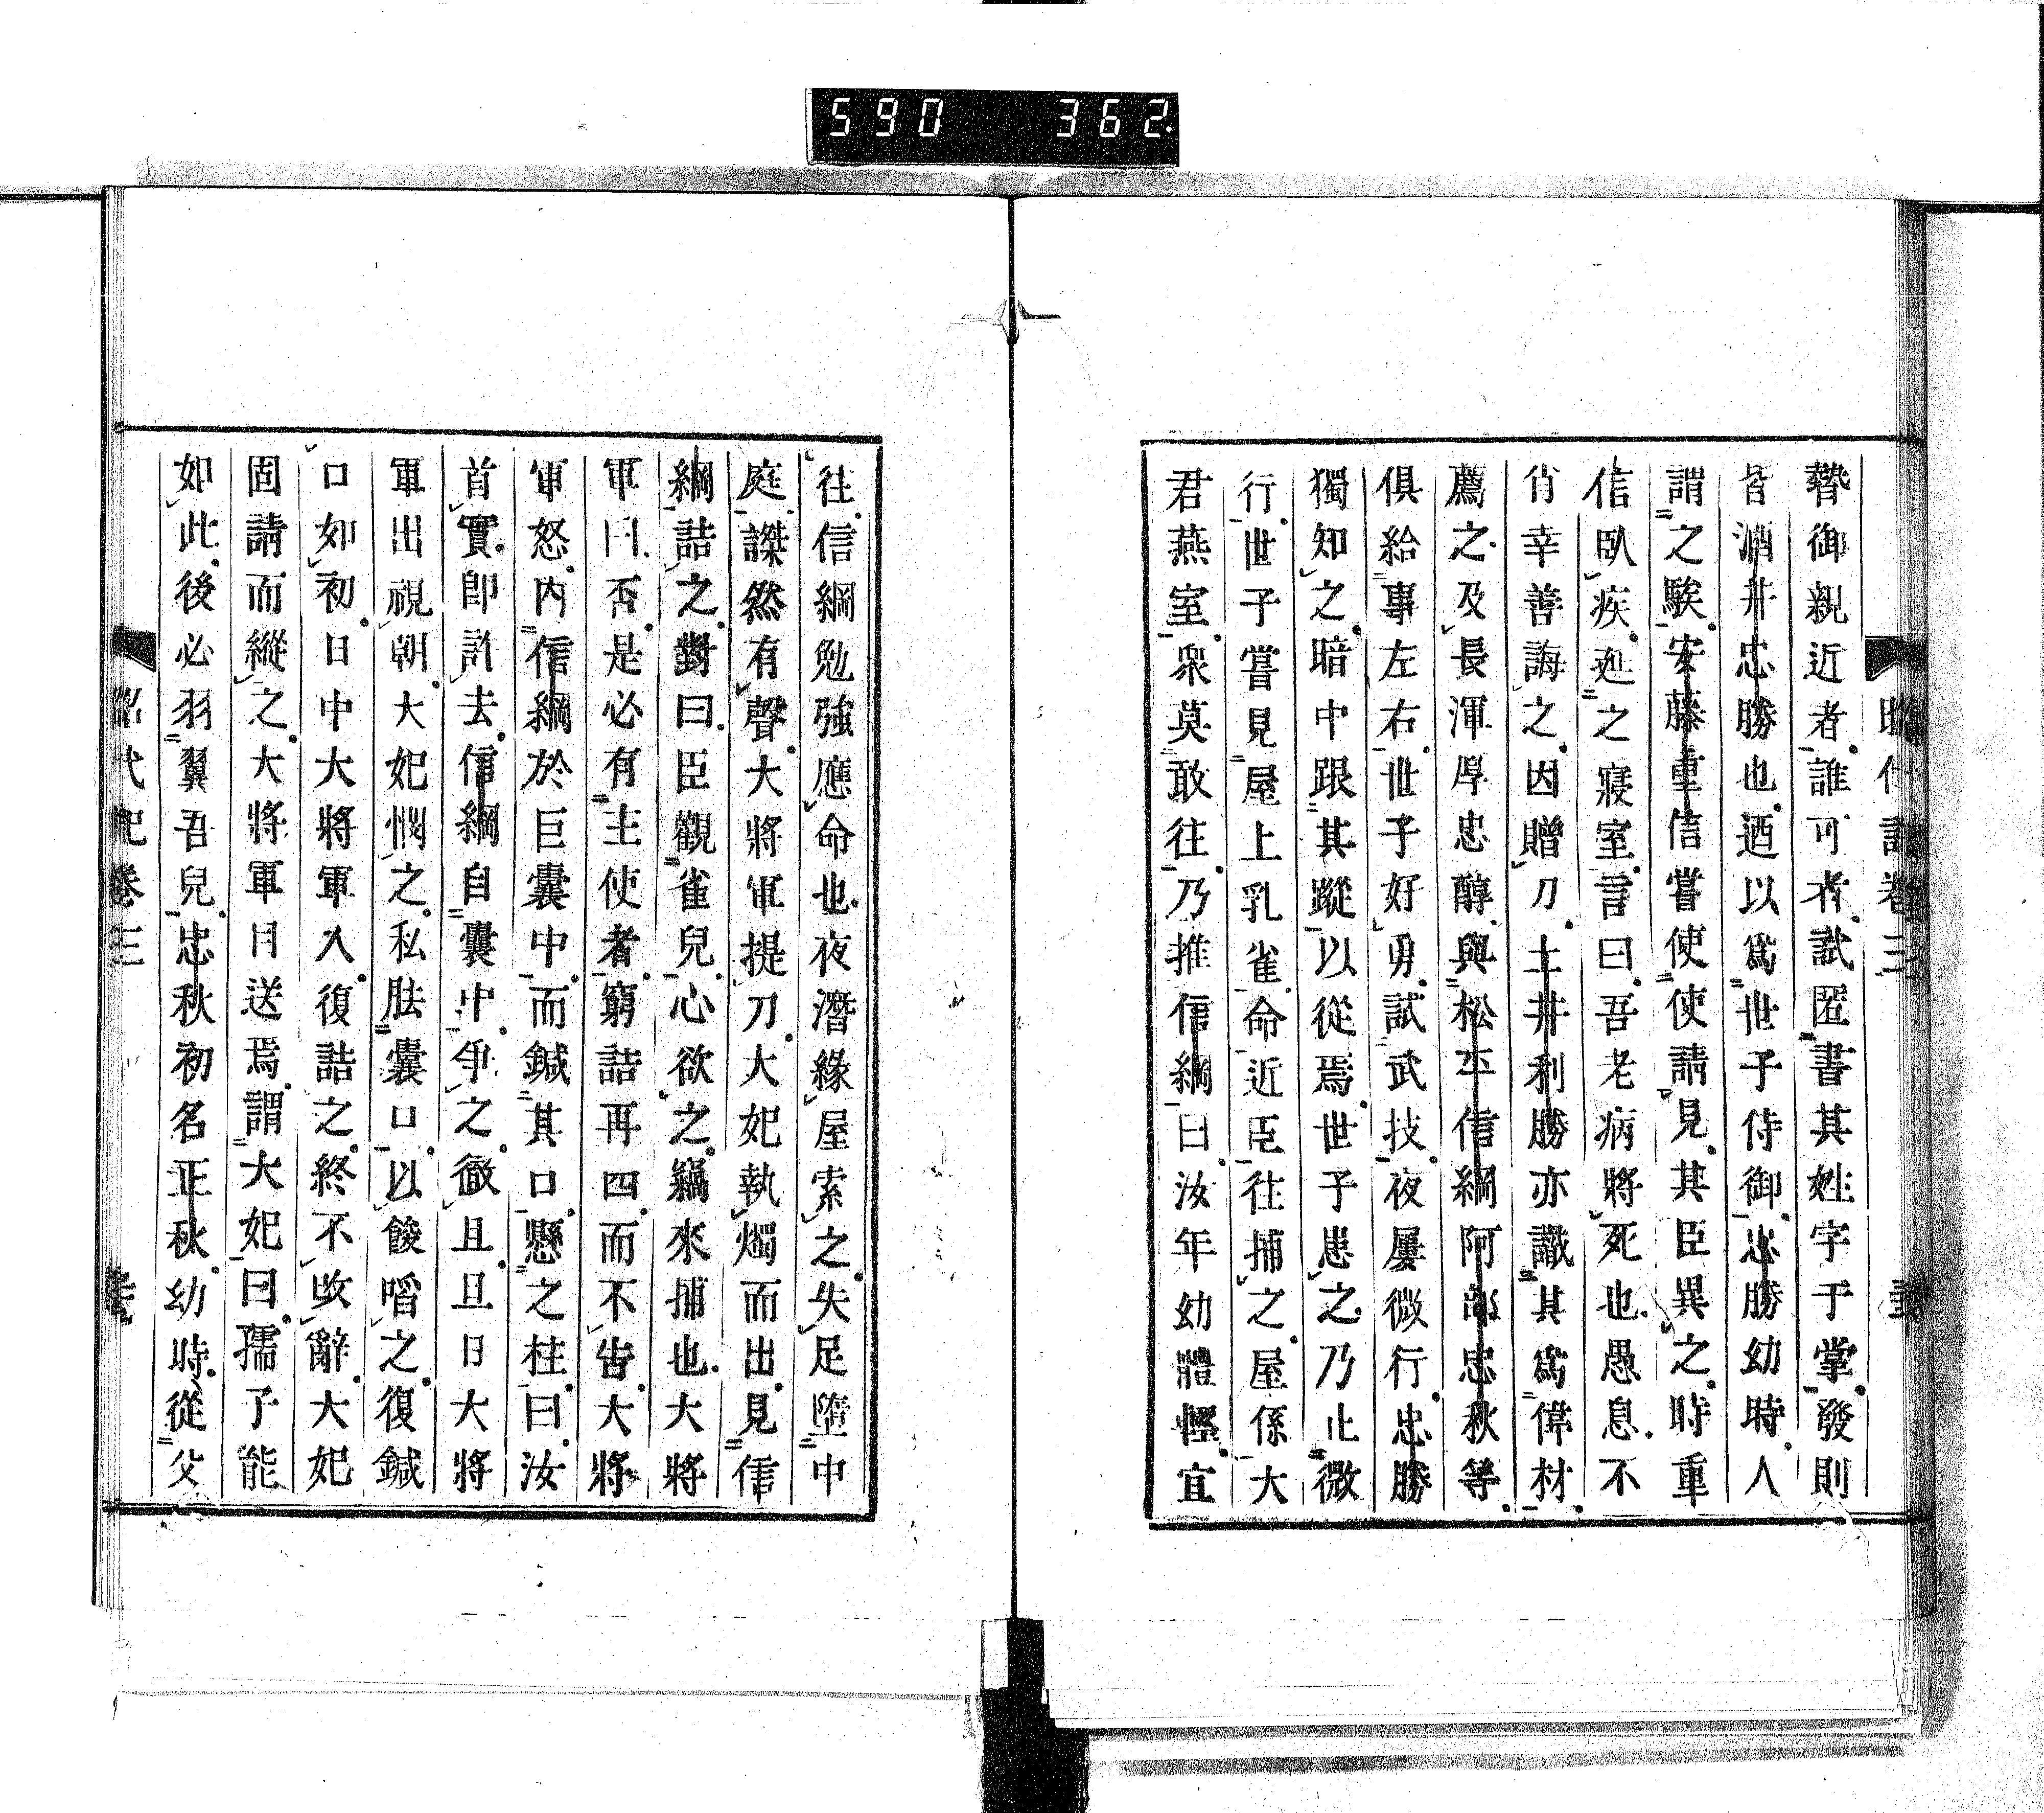 590 362
昭代記卷三
暬御親近者誰可者試匿書其姓字于掌發則
皆酒井忠勝也迺以爲世子侍御忠勝幼時人
謂之騃安藤重信嘗使使請見其臣異之時重
信臥疾延之寢室言曰吾老病將死也愚息不
肖幸善誨之因贈刀土井利勝亦識其爲偉材
薦之及長渾厚忠醇與松平信綱阿部忠秋等
俱給事左右世子好勇試武技夜屢微行忠勝
獨知之暗中跟其蹤以從焉世子患之乃止微
行世子嘗見屋上乳雀命近臣往捕之屋係大
君燕室衆莫敢往乃推信綱曰汝年幼體輕宜
往信綱勉強應命也夜潛緣屋索之失足墮中
庭謋然有聲大將軍提刀大妃執燭而出見信
綱詰之對曰臣觀雀兒心欲之竊來捕也大將
軍曰否是必有主使者窮詰再四而不告大將
軍怒內信綱於巨囊中而鍼其口懸之柱曰汝
首實卽許去信綱自囊中爭之徹且旦日大將
軍出視朝大妃憫之私胠囊口以餕啗之復鍼
口如初日中大將軍入復詰之終不改辭大妃
固請而縱之大將軍目送焉謂大妃曰孺子能
如此後必羽翼吾兒忠秋初名正秋幼時從父
昭代記卷三